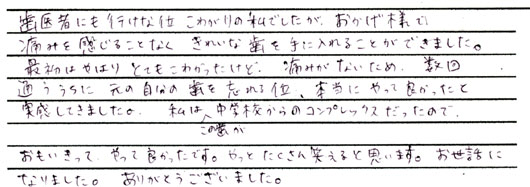 歯医者にも行けない位 こわがりの私でしたが、おかげ様で
痛みを感じることなく きれいな歯を手に入れることができました。
最初はやはり とてもこわかったけど、痛みがないため、数回
通ううちに 元の自分の歯を忘れる位、本当に やって良かったと
実感してきました。 私は 中学校からのコンプレックスだったので、
この歯が
おもいきって やって良かったです。やっと たくさん笑えると思います。お世話に
なりました。 ありがとうございました。